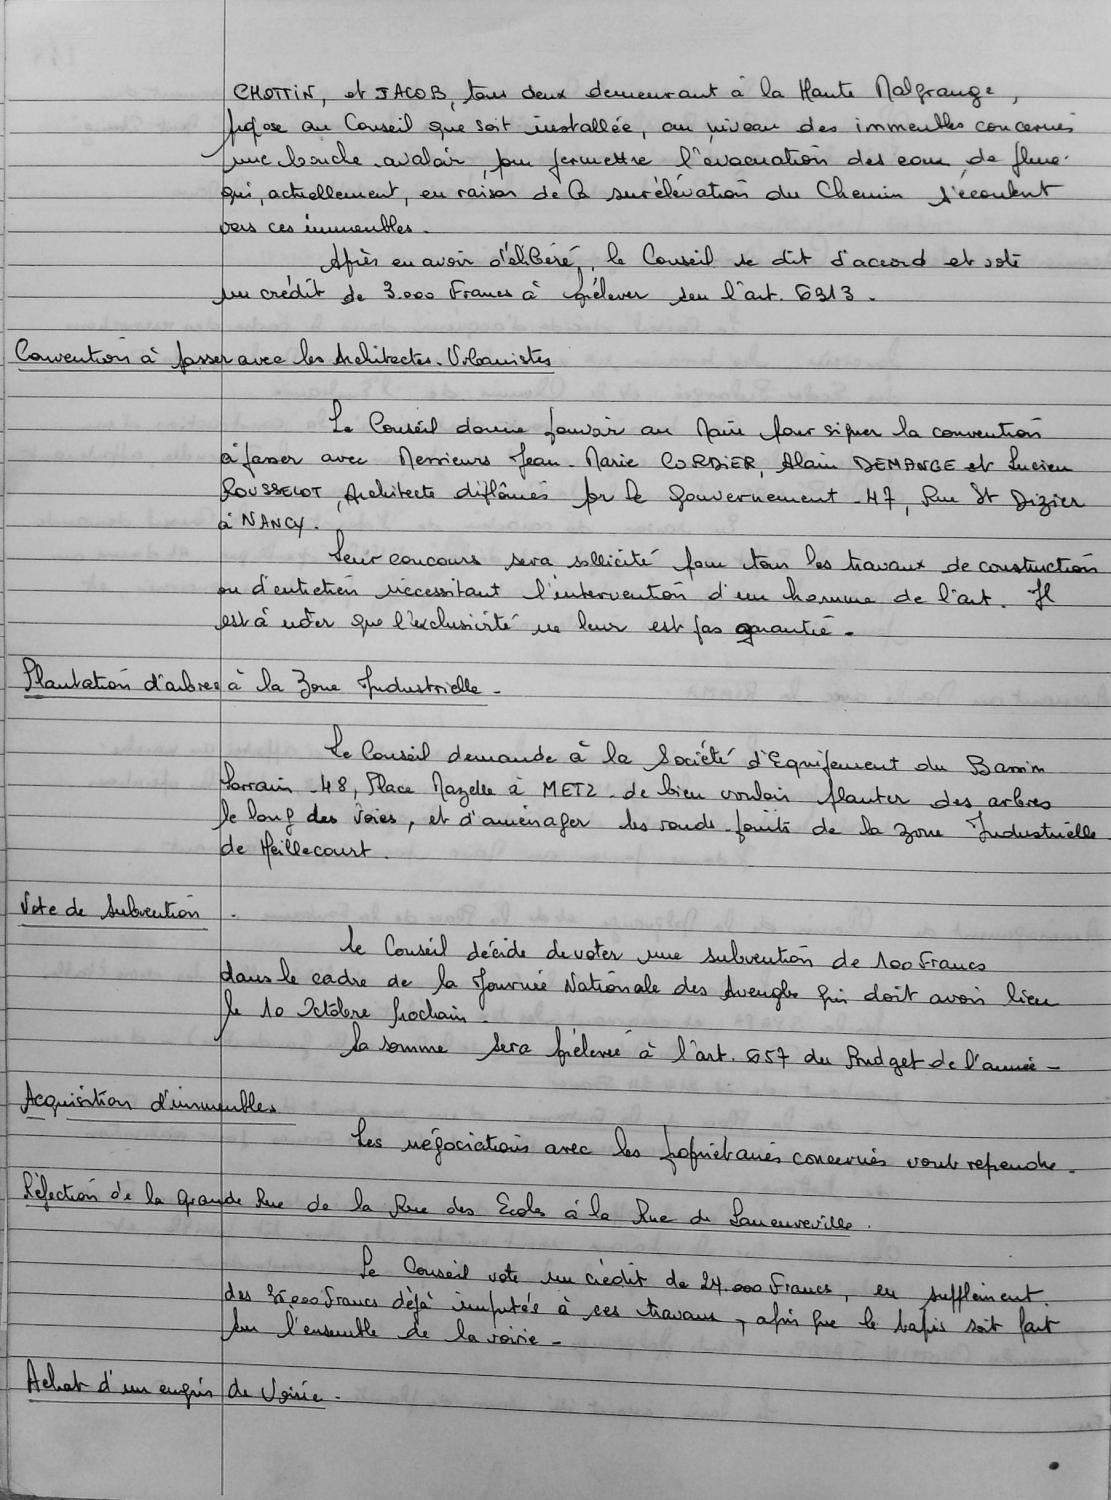 CHOTTIN, et JACOB, tous deux demeurant à la Haute Malgrange,
propose au Conseil que soit installée, au niveau des immeubles concernés
une bouche avaloir, pour permettre l'évacuation des eaux de pluie.
qui, actuellement, en raison de la surélévation du Chemin s'écoulent
vers ces immeubles.
Après en avoir délibéré, le Conseil se dit d'accord et vote
un crédit de 3.000 Francs à prélever sur l'art. 6313.
Convention à passer avec les Architectes-Urbanistes
Le Conseil donne pouvoir au Maire pour signer la convention
à passer avec Messieurs Jean-Marie CORDIER, Alain DEMANGE et Lucien
ROUSSELOT, Architecte diplômés par le Gouvernement 47, Rue St Dizier
à NANCY.
Leur concours sera sollicité pour tous les travaux de construction
ou d'entretien nécessitant l'intervention d'un homme de l'art. Il
est à noter que l'exclusivité ne leur est pas garantie.
Plantation d'arbres à la Zone Industrielle -
Le Conseil demande à la Société d'Equipement du Bassin
Lorrain 48, Place Mazelle à METZ de bien vouloir planter des arbres
le long des Voies, et d'aménager les ronds-points de la Zone Industrielle
de Heillecourt.
Vote de Subvention .
Le Conseil décide de voter une subvention de 100 Francs
dans le cadre de la Journée Nationale des Aveugles qui doit avoir lieu
le 10 Octobre prochain.
La somme sera prélevée à l'art. 657 du Budget de l'année -
Acquisition d'immeubles
Les négociations avec les propriétaires concernés vont reprendre.
Réfection de la Grande Rue de la Rue des Ecoles à la Rue de Laneuveville.
Le Conseil vote un crédit de 24.000 Francs, en supplément
des Francs déjà imputés à ces travaux, afin que le tapis soit fait
sur l'ensemble de la voirie -
Achat d'un engin de Voirie -